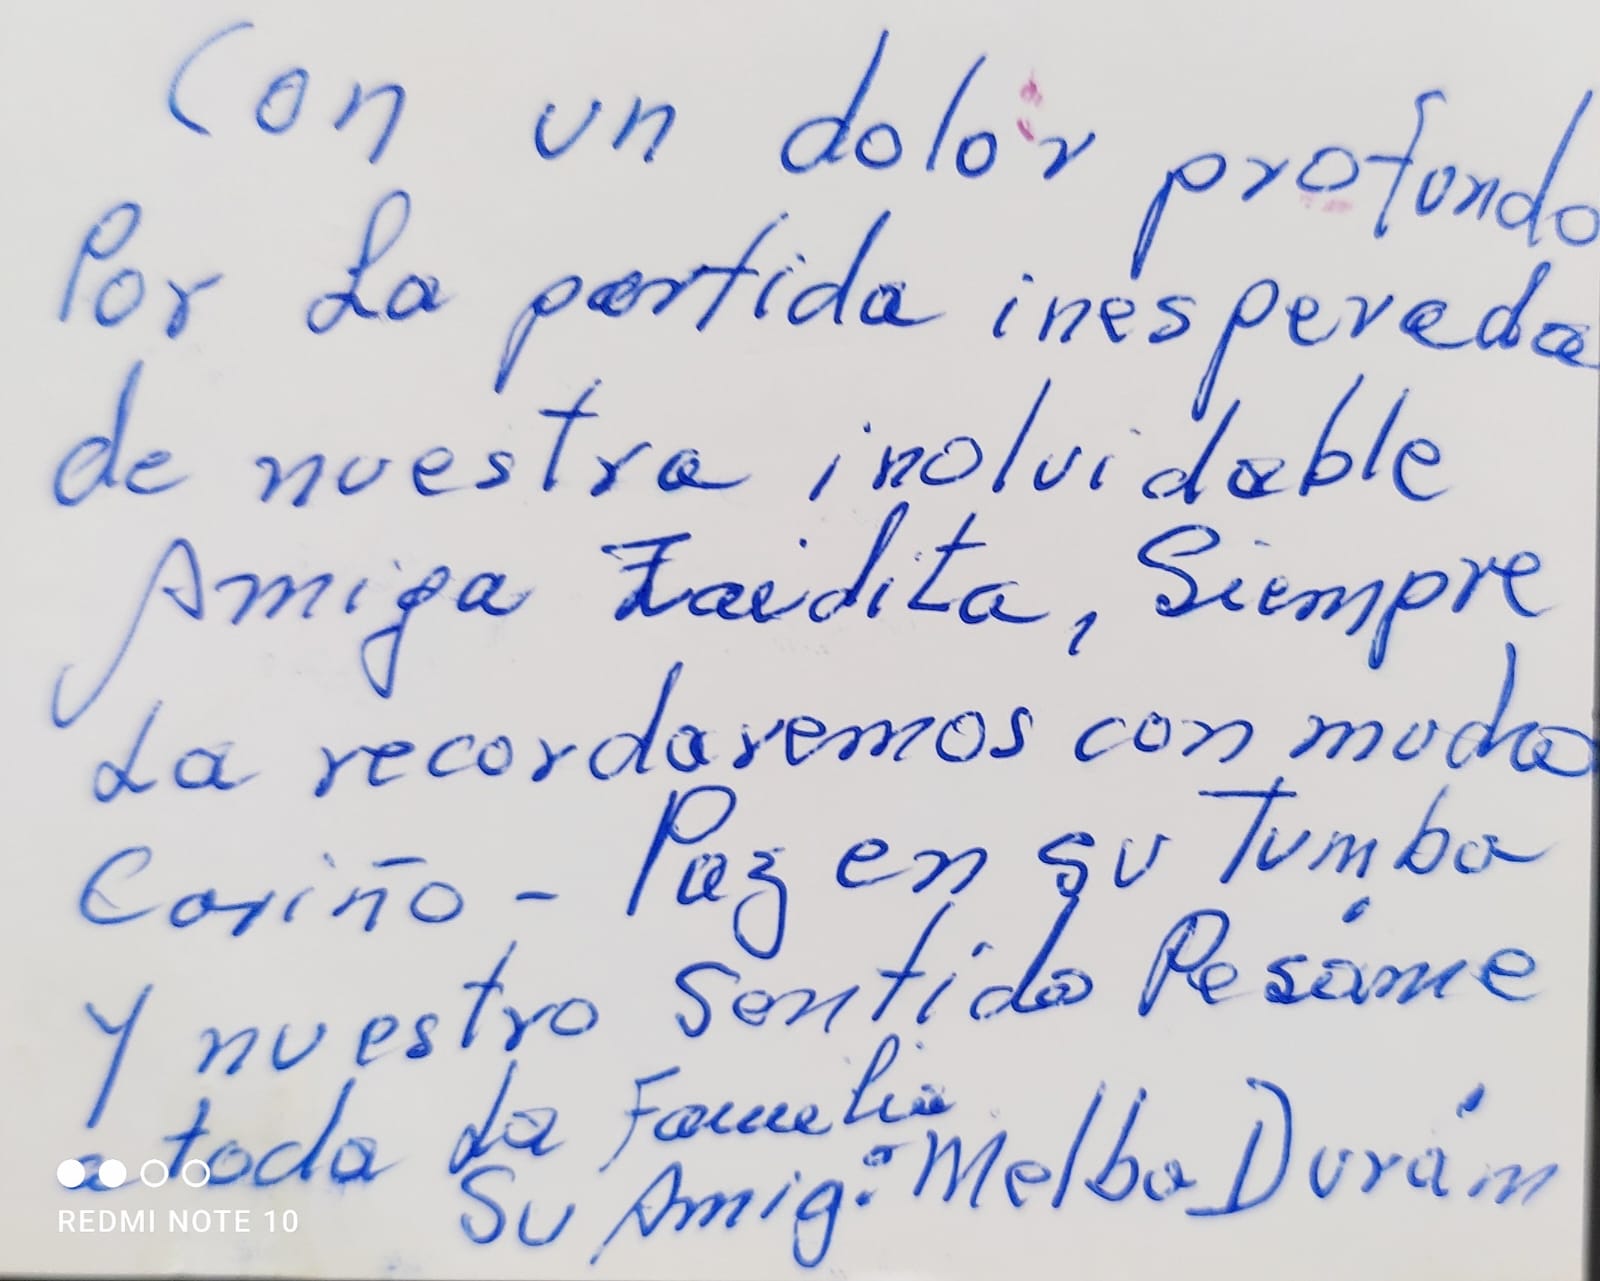 Con un dolor profundo
Por La partida inesperada
de nuestra inolvidable
Amiga Zaidita, Siempre
La recordaremos con mucho
Cariño - Paz en su Tumba
y nuestro Sentido Pesáme
a toda La Familia
Su Amig.ª Melba Durán
REDMI NOTE 10